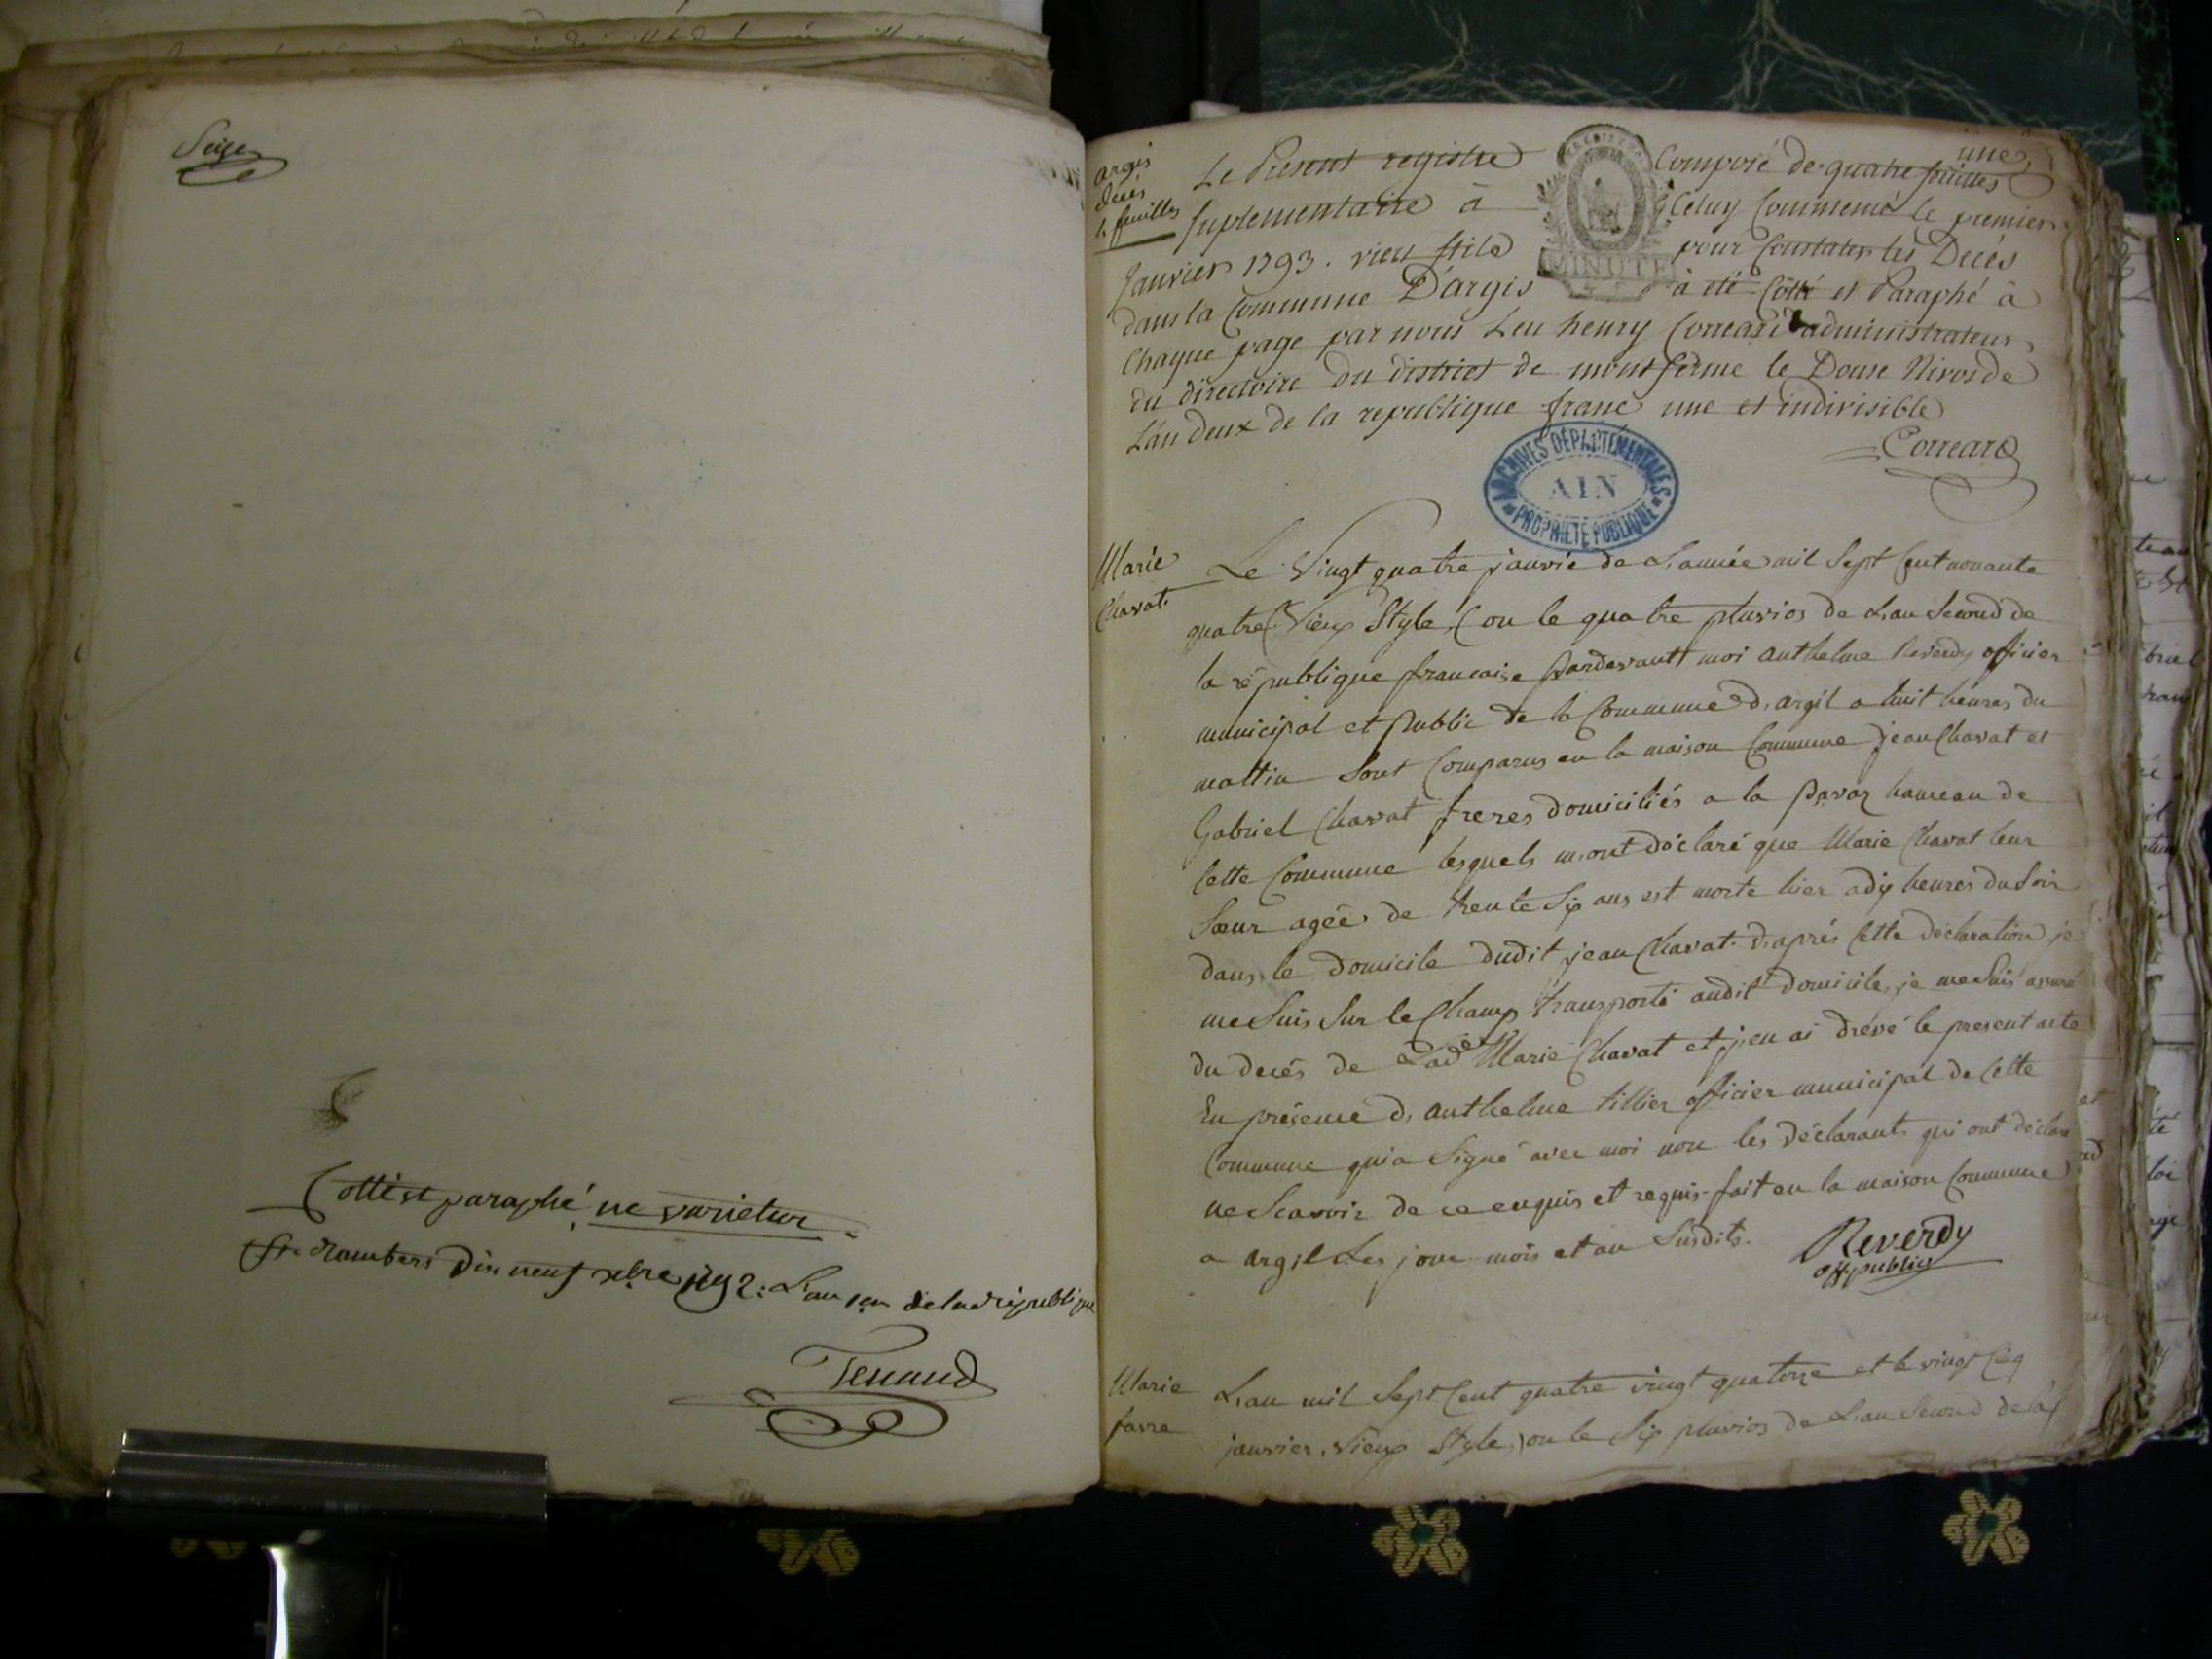 Seize
Cotté et paraphé ne varietur
St Rambert dix neuf xbre 1792: L'an 1er de la république
Tenand
une
argis
decés
4 feuilles
Le Present registre Composé de quatre feuilles
suplementaire à Celuy Commencé le premier
Janvier 1793. vieu stile pour Constater les Decés
dans la Commune D'argis à été Cotté et Paraphé à
Chaque page par nous Leu henry Correard administrateur
du directoire du district de montferme le Douse Nivosde
L'an deux de la republique franc une et indivisible
Correard
MINUTE
ARCHIVES DÉPARTEMENTALES
AIN
PROPRIÉTÉ PUBLIQUE
Marie
Chavat.
Le Vingt quatre janvié de L'année mil Sept Cent nonante
quatre (Vieux Style) ou le quatre pluvios de L'an Second de
la république francaise pardevant moi anthelme Reverdy officier
municipal et public de la Commune d'argil a huit heures du
mattin Sont Comparus en la maison Commune jean Chavat et
Gabriel Chavat freres domiciliés a la pavaz hameau de
Cette Commune lesquels m'ont déclaré que Marie Chavat leur
Sœur agée de trente Six ans est morte hier a dix heures du Soir
dans le domicile dudit jean Chavat. d'aprés Cette déclaration je
me Suis Sur le Champ transporté audit domicile, je me Suis assuré
du decés de Lade Marie Chavat et j'en ai drésé le present acte
En présence d'anthelme tillier officier municipal de Cette
Commune qui a Signé avec moi non les déclarants qui ont déclaré
ne Scavoir de ce enquis et requis fait en la maison Commune
a argil Les jour mois et an Susdits.
Reverdy
off. public
Marie
favre
L'an mil Sept Cent quatre vingt quatorze et le vingt Cinq
janvier, Vieux Style, ) ou le Six pluvios de L'an Second de la